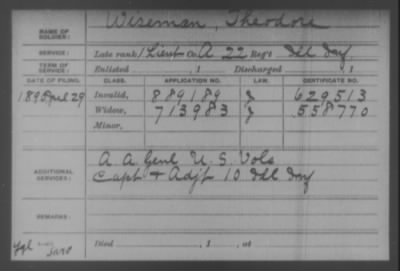 NAME OF SOLDIER: Wiseman, Theodore
SERVICE: Late rank 1 Lieut Co. A 22 Reg't
TERM OF SERVICE: Enlisted , 1 Discharged , 1
DATE OF FILING. CLASS. APPLICATION NO. LAW. CERTIFICATE NO.
1890 April 29 Invalid, 889189 J 629513
Widow, 713983 J 558770
Minor,
ADDITIONAL SERVICES: A. A. Genl U. S. Vols
Capt + Adjt 10
REMARKS:
Died , 1 , at